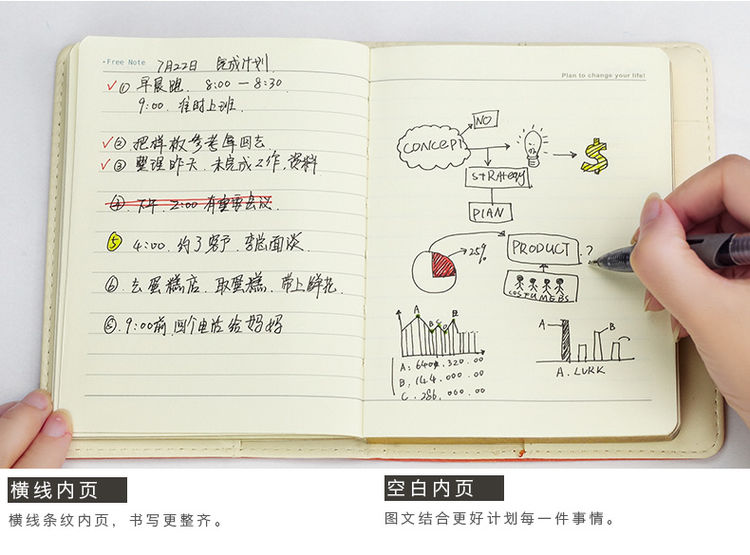 Free Note
7月22日 完成计划
① 早晨跑 8:00 — 8:30
9:00. 准时上班.
② 把样板参考库回去
③ 整理昨天.未完成工作.资料
④ 下午. 2:00 有重要会议
⑤ 4:00. 约了客户 面谈.
⑥ 去蛋糕店. 取蛋糕.带上鲜花.
⑤.9:00前.回个电话给妈妈
Plan to change your life!
NO
CONCEPT
$
STRATEGY
PLAN
25%
PRODUCT
?
COSTUMEBS
A
B
C
B
A: 640.320.00
B: 144.000.00
C. 286.000.00
A
B
A. LUKK
横线内页
横线条纹内页，书写更整齐。
空白内页
图文结合更好计划每一件事情。